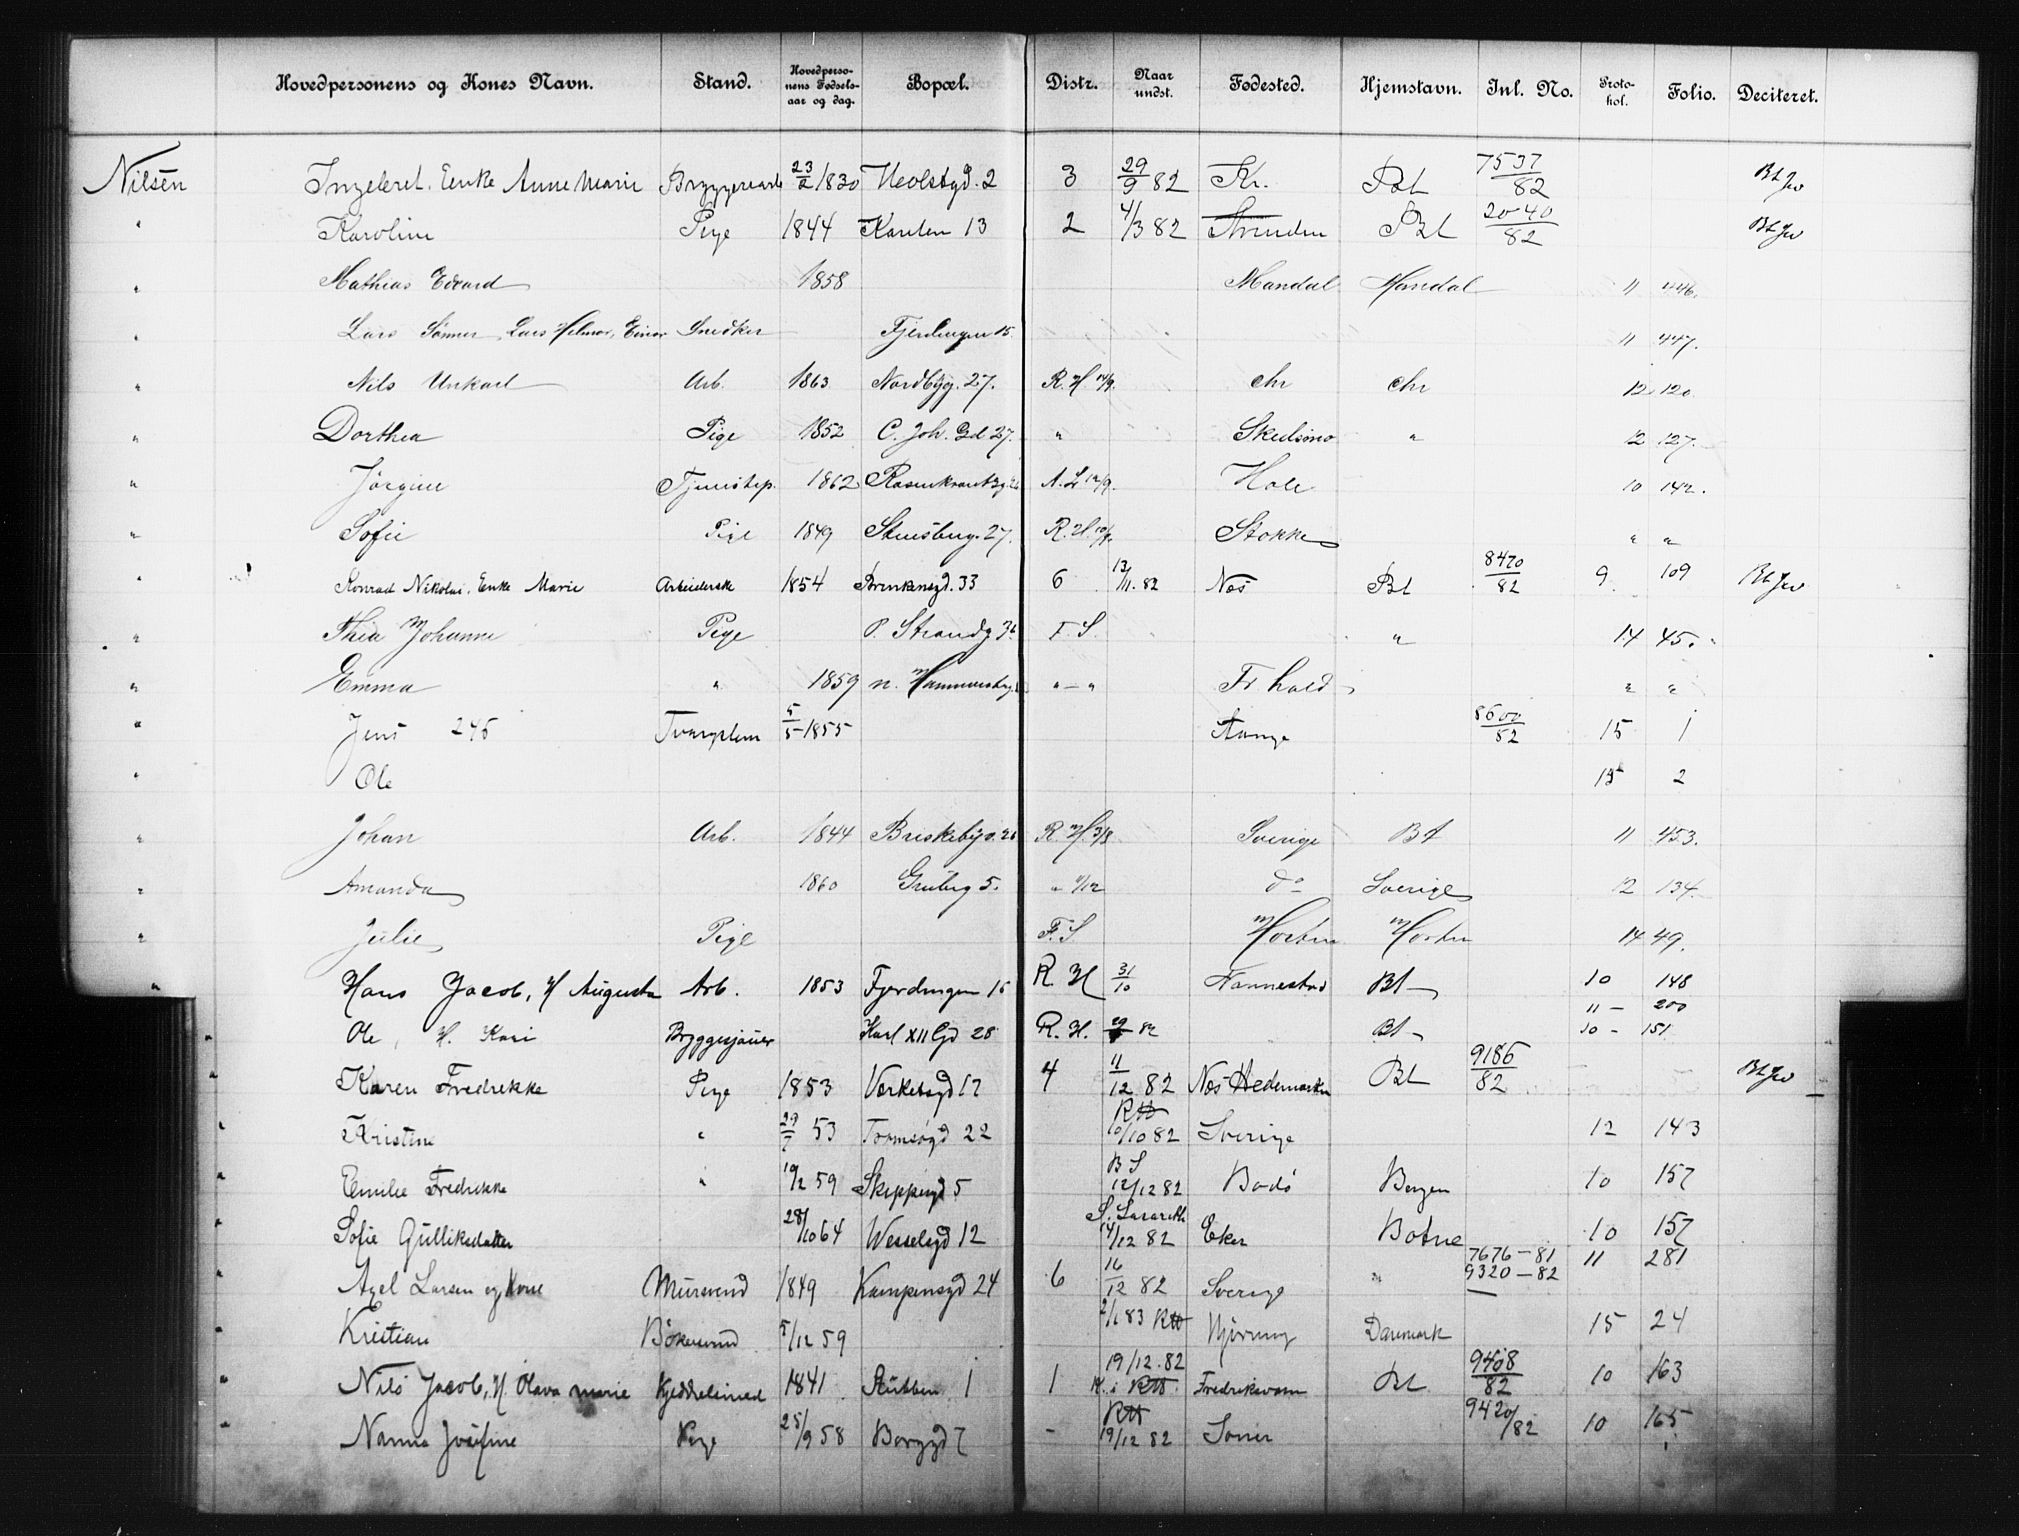 Hovedpersonens og Kones Navn. Stand. Hovedpersonens Fødselsaar og dag. Bopæl. Distr. Naar undst. Fødested. Hjemstavn. Inl. No. Protokol. Folio. Deciteret.
Nilsen Enke Anne Marie 23/2 1830 2 3 29/9 82 Kr. Bt 7537/82
" Karoline Pige 1844 13 2 4/3 82 Bt 2040/82
" Mathias Edvard 1858 Mandal Mandal 11 446.
" Lars Sønner, Lars Hilmar, Einar Snedker Fjerdingen 15. 11 447.
" Nils Unkarl Arb. 1863 Nordbyg. 27. R. H. 14/9. Chr Chr 12 120.
" Dorthea Pige 1852 C. Joh. Gd 27. " Skedsmo " 12 127.
" Jørgine Tjenstep. 1862 Rosenkrantzg. 26 A. L 12/9. Hole 10 142.
" Sofie Pige 1849 Stensberg. 27. R. H. Stokke " "
" Konrad Nikolai. Enke Marie Arbeiderske 1854 Brinkensgd. 33 6 13/11. 82 Næs Bt 8470/82 9 109
" Thea Johanne Pige P. Strandg 36 F. S. " 14 45.
" Emma " 1859 n. Hammersborg "-" Fr hald " "
" Jens 246 Tvangslem 5/5 1855 8600/82 15 1
" Ole 15 2
" Johan Arb. 1844 Briskebyv. 26 R. H. 3/8 Sverige Bt 11 453.
" Amanda 1860 Grubeg 5. " 11/12 do Sverige 12 134.
" Julie Pige F. S Horten Horten 14 49.
" Hans Jacob, H Augusta Arb. 1853 Fjerdingen 15 R H 31/10 Nannestad Bt 10 148
11 - 200
" Ole, H. Kari Bryggesjauer Karl XII Gd 28 R. H. 82 Bt 10 - 151
" Karen Fredrekke Pige 1853 Verkstsgd 17 4 11/12 82 Næs Hedemarken Bt 9186/82
" Kristine " 29/7 53 Tromsøgd 22 10/10 82 Sverige 12 143
" Emilie Fredrikke " 19/2 59 Skippergd 5 B S 12/12 82 Bodø Bergen 10 157
" Sofie Gulliksdatter 28/10 64 Wesselsgd 12 S. Lazareth 14/12 82 Eker Botne 10 157
" Axel Larsen og Kone Mursvend 1849 Kampensgd 24 6 16/12 82 Sverige " 7676-81 9320-82 11 281
" Kristian Bøkersvend 5/12 59 2/1 83 Hjørring Danmark 15 24
" Nils Jacob, H. Olava Marie Kjeddelsmed 1841 Stubben 1 1 19/12. 82 Fredriksværn Bt 9408/82 10 163
" Nanna Josefine Pige 25/9 58 Borggd 7 - 19/12 82 9420/82 10 165